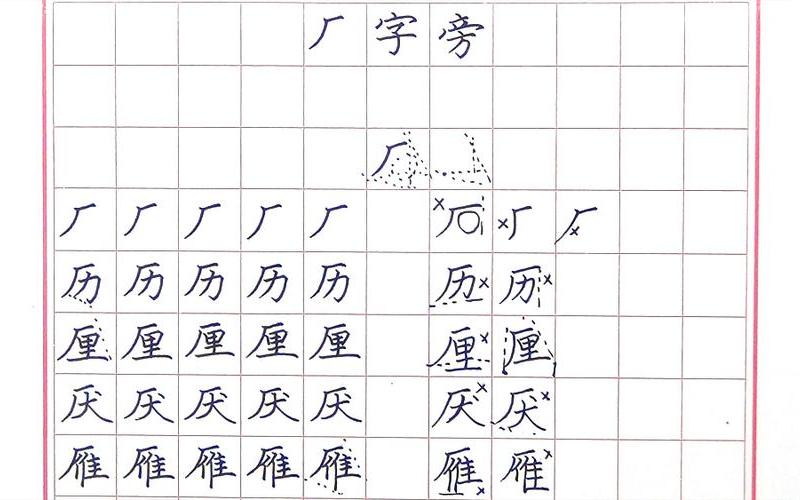 厂字旁
厂
厂厂厂厂厂 厂 厂 厂
历历历历历 历历
厘厘厘厘厘 厘厘
厌厌厌厌厌 厌厌
雁雁雁雁雁 雁雁